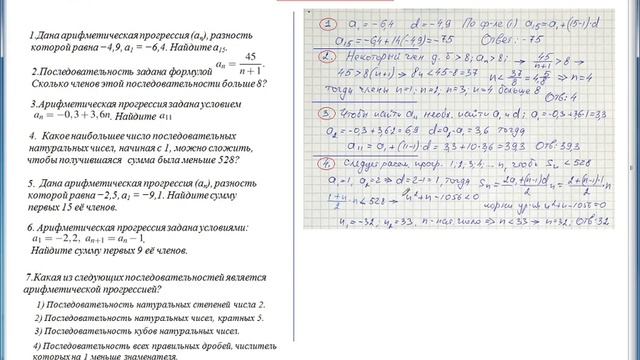 1.Дана арифметическая прогрессия (aₙ), разность
которой равна −4,9, a₁ = −6,4. Найдите a₁₅.
2.Последовательность задана формулой aₙ = 45/(n+1).
Сколько членов этой последовательности больше 8?
3.Арифметическая прогрессия задана условием
aₙ = −0,3 + 3,6n. Найдите a₁₁
4. Какое наибольшее число последовательных
натуральных чисел, начиная с 1, можно сложить,
чтобы получившаяся сумма была меньше 528?
5. Дана арифметическая прогрессия (aₙ), разность
которой равна −2,5, a₁ = −9,1. Найдите сумму
первых 15 её членов.
6. Арифметическая прогрессия задана условиями:
a₁ = −2,2, aₙ₊₁ = aₙ − 1,
Найдите сумму первых 9 её членов.
7.Какая из следующих последовательностей является
арифметической прогрессией?
1) Последовательность натуральных степеней числа 2.
2) Последовательность натуральных чисел, кратных 5.
3) Последовательность кубов натуральных чисел.
4) Последовательность всех правильных дробей, числитель
которых на 1 меньше знаменателя.
1 a₁ = −6,4 d = −4,9 По ф-ле (1) a₁₅ = a₁ + (15−1)·d
a₁₅ = −6,4 + 14(−4,9) = −75 Ответ: −75
2. Некоторый член д. б > 8; aₙ > 8; → 45/(n+1) > 8 →
45 > 8(n+1) → 8n < 45−8 = 37 n < 37/8 = 4 5/8 → n = 4
тогда члены n=1; n=2; n=3, n=4 больше 8
От: 4
3. Чтобы найти a₁₁ необх. найти a₁ и d; a₁ = −0,3+3,6·1 = 3,3
a₂ = −0,3+3,6·2 = 6,9 d = a₂−a₁ = 3,6 тогда
a₁₁ = a₁ + (11−1)d = 3,3 + 10·3,6 = 39,3 От: 39,3
4. Следует рассм. прогр. 1, 2, 3, 4 ... n, чтобы Sₙ < 528
a₁ = 1, a₂ = 2 → d = 2−1 = 1, тогда Sₙ = (2a₁+(n−1)d)/2 n = (2+(n−1)·1)/2 n
(1+n)/2 · n < 528 → n²+n−1056 < 0 корни ур-ия n²+n−1056=0
n₁ = −32, n₂ = 33, n - нат. число → n < 33 → n = 32; От: 32